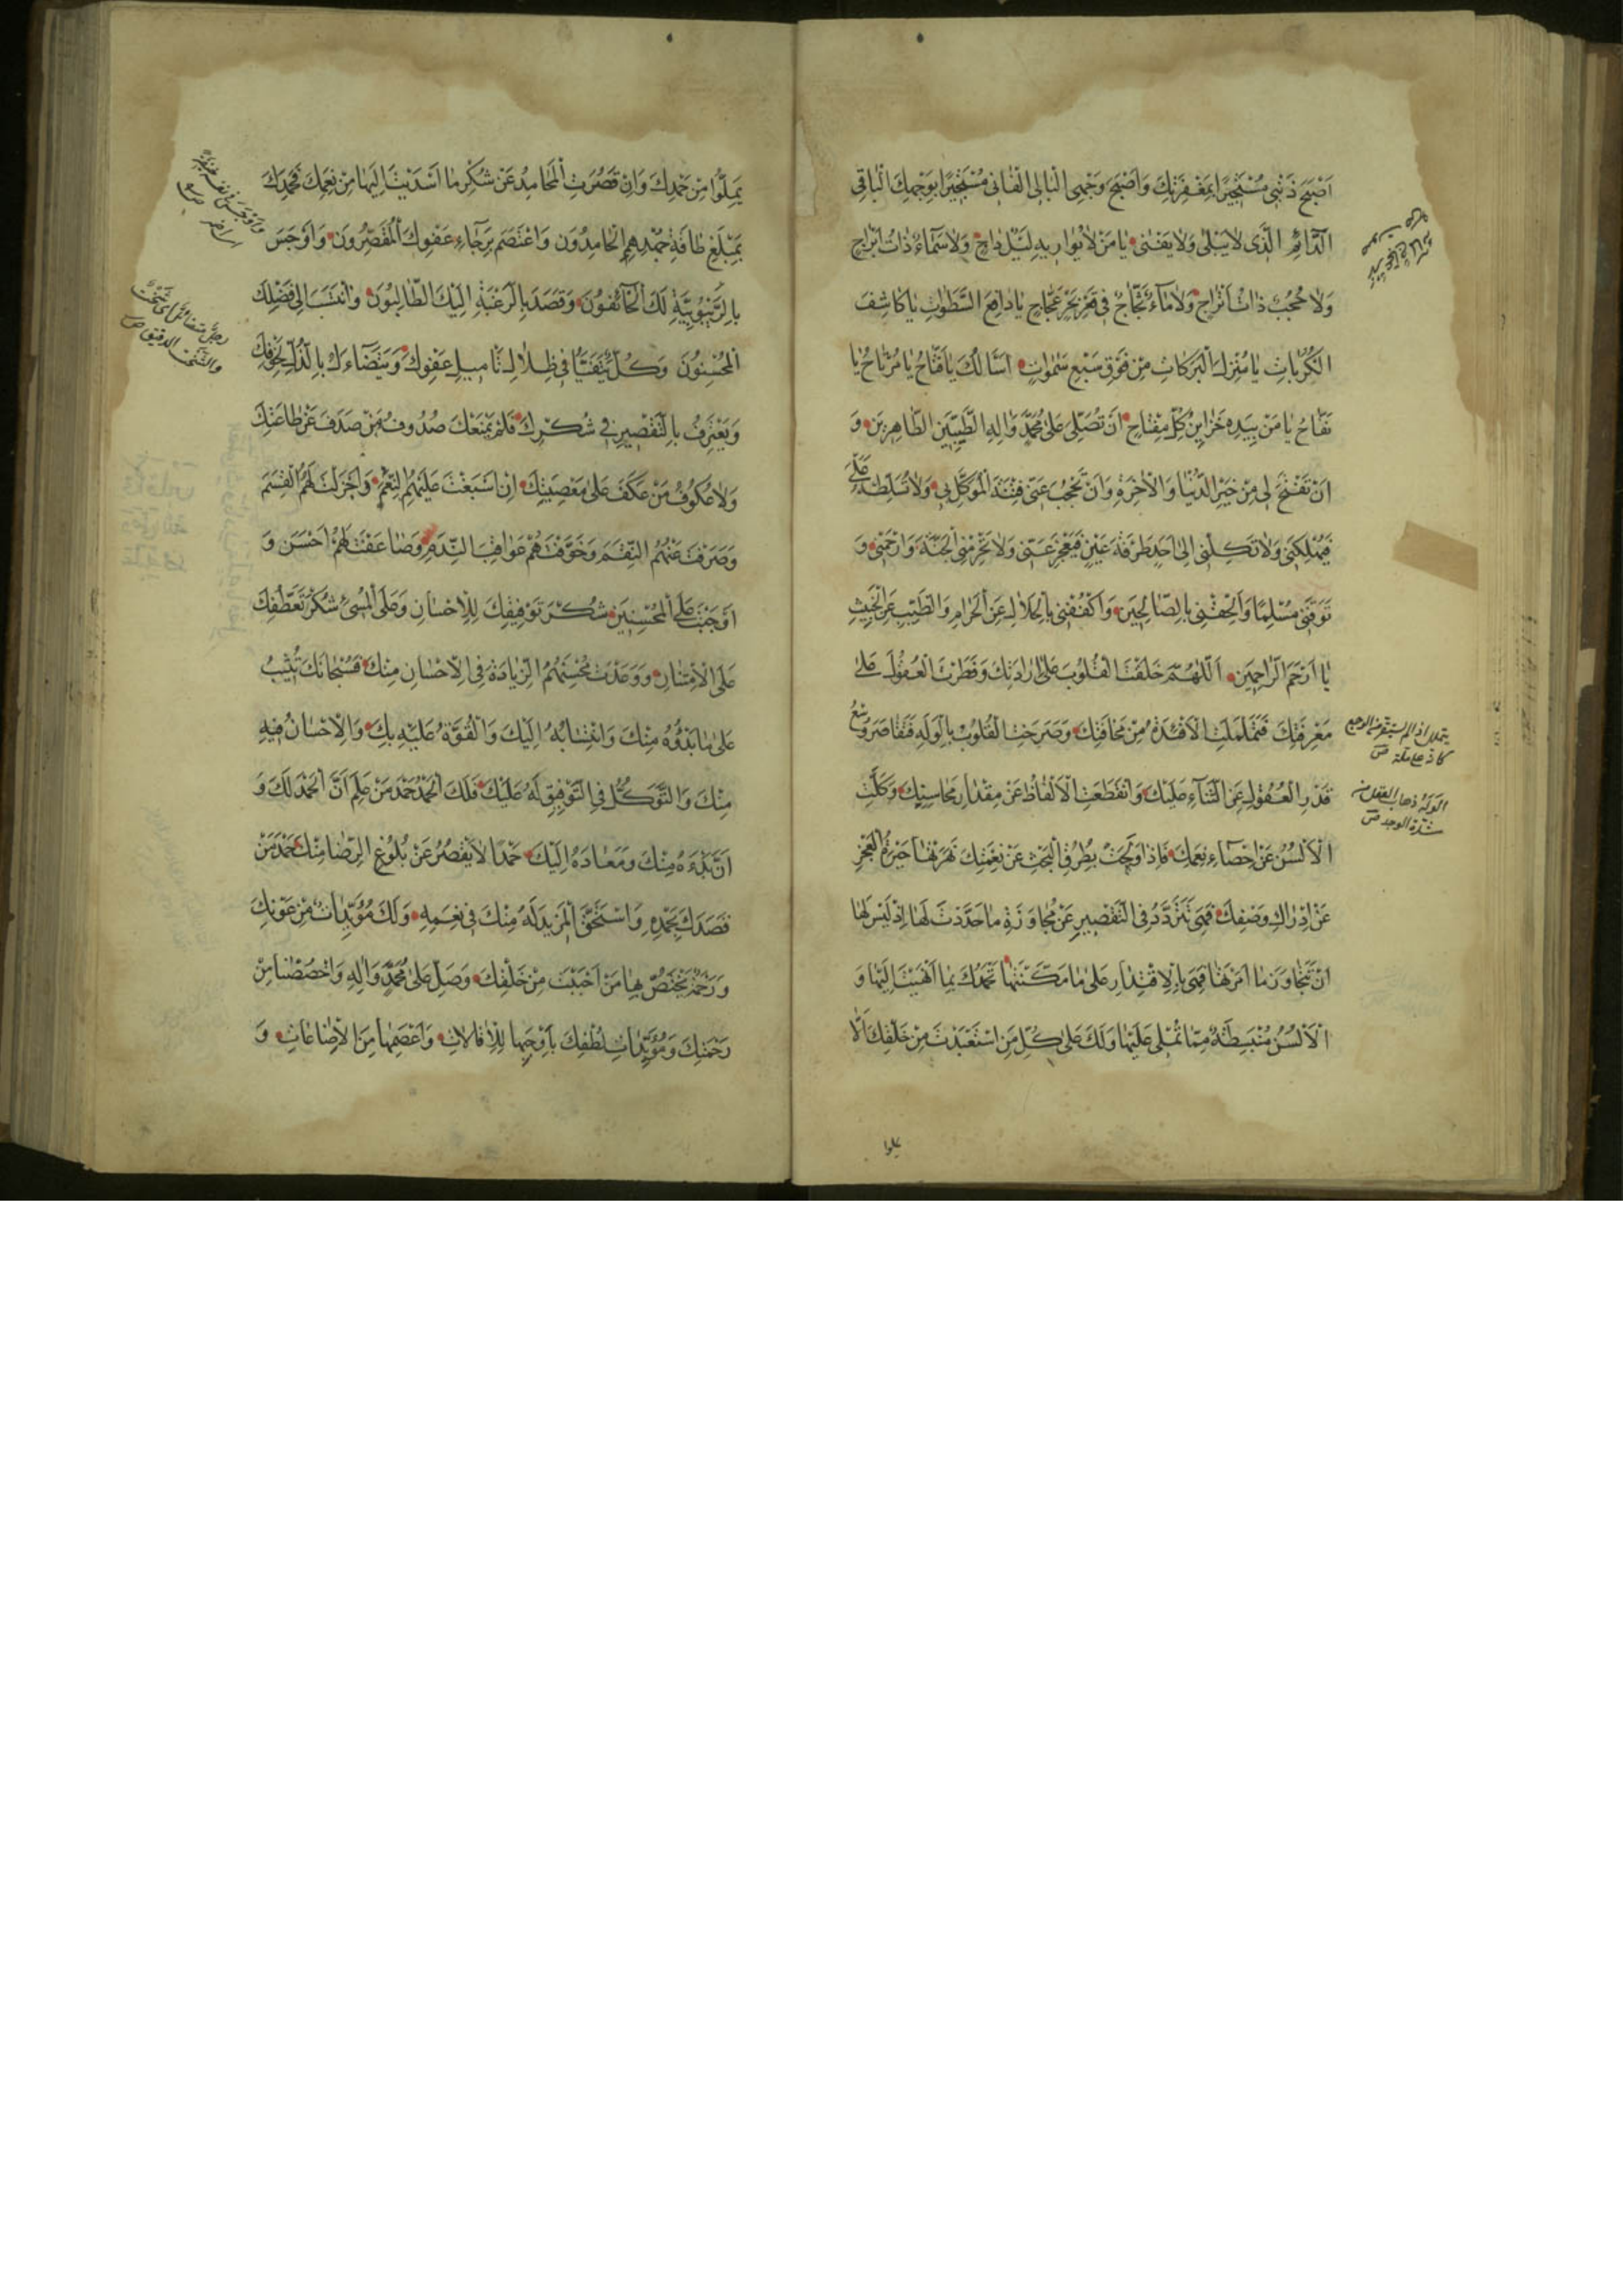 اَصْبَحَ ذَنْبِي مُسْتَجِيرًا بِمَغْفِرَتِكَ وَاَصْبَحَ وَجْهِي الْبَالِي الْفَانِي مُسْتَجِيرًا بِوَجْهِكَ الْبَاقِي
الدَّائِمِ الَّذِي لَا يَبْلَى وَلَا يَفْنَى يَا مَنْ لَا يُوَارِيهِ لَيْلٌ دَاجٍ وَلَا سَمَاءٌ ذَاتُ اَبْرَاجٍ
وَلَا حُجُبٌ ذَاتُ اَتْرَاجٍ وَلَا مَاءٌ ثَجَّاجٌ فِي قَعْرِ بَحْرٍ عَجَّاجٍ يَا دَافِعَ السَّطَوَاتِ يَا كَاشِفَ
الْكُرُبَاتِ يَا مُنْزِلَ الْبَرَكَاتِ مِنْ فَوْقِ سَبْعِ سَمَوَاتٍ اَسْاَلُكَ يَا فَتَّاحُ يَا مُرْتَاحُ يَا
نَفَّاحُ يَا مَنْ بِيَدِهِ خَزَايِنُ كُلِّ مِفْتَاحٍ اَنْ تُصَلِّيَ عَلَى مُحَمَّدٍ وَآلِهِ الطَّيِّبِينَ الطَّاهِرِينَ وَ
اَنْ تَفْتَحَ لِي مِنْ خَيْرِ الدُّنْيَا وَالْآخِرَةِ وَاَنْ تَحْجُبَ عَنِّي فِتْنَةَ الْمُوَكَّلِ بِي وَلَا تُسَلِّطْهُ عَلَيَّ
فَيُهْلِكَنِي وَلَا تَكِلْنِي اِلَى اَحَدٍ طَرْفَةَ عَيْنٍ فَيَعْجِزَ عَنِّي وَلَا تَحْرِمْنِي الْجَنَّةَ وَارْحَمْنِي وَ
تَوَفَّنِي مُسْلِمًا وَاَلْحِقْنِي بِالصَّالِحِينَ وَاكْفُفْنِي بِالْحَلَالِ عَنِ الْحَرَامِ وَالطَّيِّبِ عَنِ الْخَبِيثِ
يَا اَرْحَمَ الرَّاحِمِينَ اَللَّهُمَّ خَلَقْتَ الْقُلُوبَ عَلَى اِرَادَتِكَ وَفَطَرْتَ الْعُقُولَ عَلَى
مَعْرِفَتِكَ فَتَمَلْمَلَتِ الْاَفْئِدَةُ مِنْ مَخَافَتِكَ وَصَرَخَتِ الْقُلُوبُ بِالْوَلَهِ فَتَقَاصَرَ وُسْعُ
قَدْرِ الْعُقُولِ عَنِ الثَّنَاءِ عَلَيْكَ وَانْقَطَعَتِ الْاَلْفَاظُ عَنْ مِقْدَارِ مَحَاسِنِكَ وَكَلَّتِ
الْاَلْسُنُ عَنْ اِحْصَاءِ نِعَمِكَ فَاِذَا وَلَجَتْ بِطُرُقِ الْبَحْثِ عَنْ نِعْمَتِكَ بَهَرَتْهَا حَيْرَةُ الْعَجْزِ
عَنْ اِدْرَاكِ وَصْفِكَ فَهِيَ تَتَرَدَّدُ فِي التَّقْصِيرِ عَنْ مُجَاوَزَةِ مَا حَدَّدْتَ لَهَا اِذْ لَيْسَ لَهَا
اَنْ تَتَجَاوَزَ مَا اَمَرْتَهَا فَهِيَ بِالْاِقْتِدَارِ عَلَى مَا مَكَّنْتَهَا تَحْمَدُكَ بِمَا اَنْهَيْتَ اِلَيْهَا وَ
الْاَلْسُنُ مُنْبَسِطَةٌ مِمَّا تُمْلِي عَلَيْهَا وَلَكَ عَلَى كُلِّ مَنِ اسْتَعْبَدْتَ مِنْ خَلْقِكَ اَلَّا
يملوا
يتململ اذا لم يستقر من الوجع
كانه على ملة ص
الوَلَهُ ذهاب العقل من
شدة الوجد ص
يَمِلُّوا مِنْ حَمْدِكَ وَاِنْ قَصُرَتِ الْمَحَامِدُ عَنْ شُكْرِ مَا اَسْدَيْتَ اِلَيْهَا مِنْ نِعَمِكَ فَحَمِدَكَ
بِمَبْلَغِ طَاقَةِ جُهْدِهِمُ الْحَامِدُونَ وَاعْتَصَمَ بِرَجَاءِ عَفْوِكَ الْمُقَصِّرُونَ وَاَوْجَسَ
بِالرُّبُوبِيَّةِ لَكَ الْخَائِفُونَ وَقَصَدَ بِالرَّغْبَةِ اِلَيْكَ الطَّالِبُونَ وَانْتَسَبَ اِلَى فَضْلِكَ
الْمُحْسِنُونَ وَكُلٌّ يَتَفَيَّاُ فِي ظِلَالِ تَأْمِيلِ عَفْوِكَ وَيَتَضَاءَلُ بِالذُّلِّ لِخَوْفِكَ
وَيَعْتَرِفُ بِالتَّقْصِيرِ فِي شُكْرِكَ فَلَمْ يَمْنَعْكَ صُدُوفُ مَنْ صَدَفَ عَنْ طَاعَتِكَ
وَلَا عُكُوفُ مَنْ عَكَفَ عَلَى مَعْصِيَتِكَ اِنْ اَسْبَغْتَ عَلَيْهِمُ النِّعَمَ وَاَجْزَلْتَ لَهُمُ الْقِسَمَ
وَصَرَفْتَ عَنْهُمُ النِّقَمَ وَخَوَّفْتَهُمْ عَوَاقِبَ النَّدَمِ وَضَاعَفْتَ لِمَنْ اَحْسَنَ وَ
اَوْجَبْتَ عَلَى الْمُحْسِنِينَ شُكْرَ تَوْفِيقِكَ لِلْاِحْسَانِ وَعَلَى الْمُسِيءِ شُكْرَ تَعَطُّفِكَ
عَلَى الْاِمْتِنَانِ وَوَعَدْتَ مُحْسِنَهُمُ الزِّيَادَةَ فِي الْاِحْسَانِ مِنْكَ فَسُبْحَانَكَ تُثِيبُ
عَلَى مَا بَدْؤُهُ مِنْكَ وَانْتِسَابُهُ اِلَيْكَ وَالْقُوَّةُ عَلَيْهِ بِكَ وَالْاِحْسَانُ فِيهِ
مِنْكَ وَالتَّوَكُّلُ فِي التَّوْفِيقِ لَهُ عَلَيْكَ فَلَكَ الْحَمْدُ حَمْدَ مَنْ عَلِمَ اَنَّ الْحَمْدَ لَكَ وَ
اَنَّ بَدْءَهُ مِنْكَ وَمَعَادَهُ اِلَيْكَ حَمْدًا لَا يَقْصُرُ عَنْ بُلُوغِ الرِّضَا مِنْكَ حَمْدَ مَنْ
قَصَدَكَ بِحَمْدِهِ وَاسْتَحَقَّ الْمَزِيدَ لَهُ مِنْكَ فِي نِعَمِهِ وَلَكَ مُؤَيِّدَاتٌ مِنْ عَوْنِكَ
وَرَحْمَةٌ تَخُصُّ بِهَا مَنْ اَحْبَبْتَ مِنْ خَلْقِكَ وَصَلِّ عَلَى مُحَمَّدٍ وَآلِهِ وَاخْصُصْنَا مِنْ
رَحْمَتِكَ وَمُؤَيِّدَاتِ لُطْفِكَ بِاَوْجَبِهَا لِلْاِقَالَاتِ وَاَعْصَمِهَا مِنَ الْاِضَاعَاتِ وَ